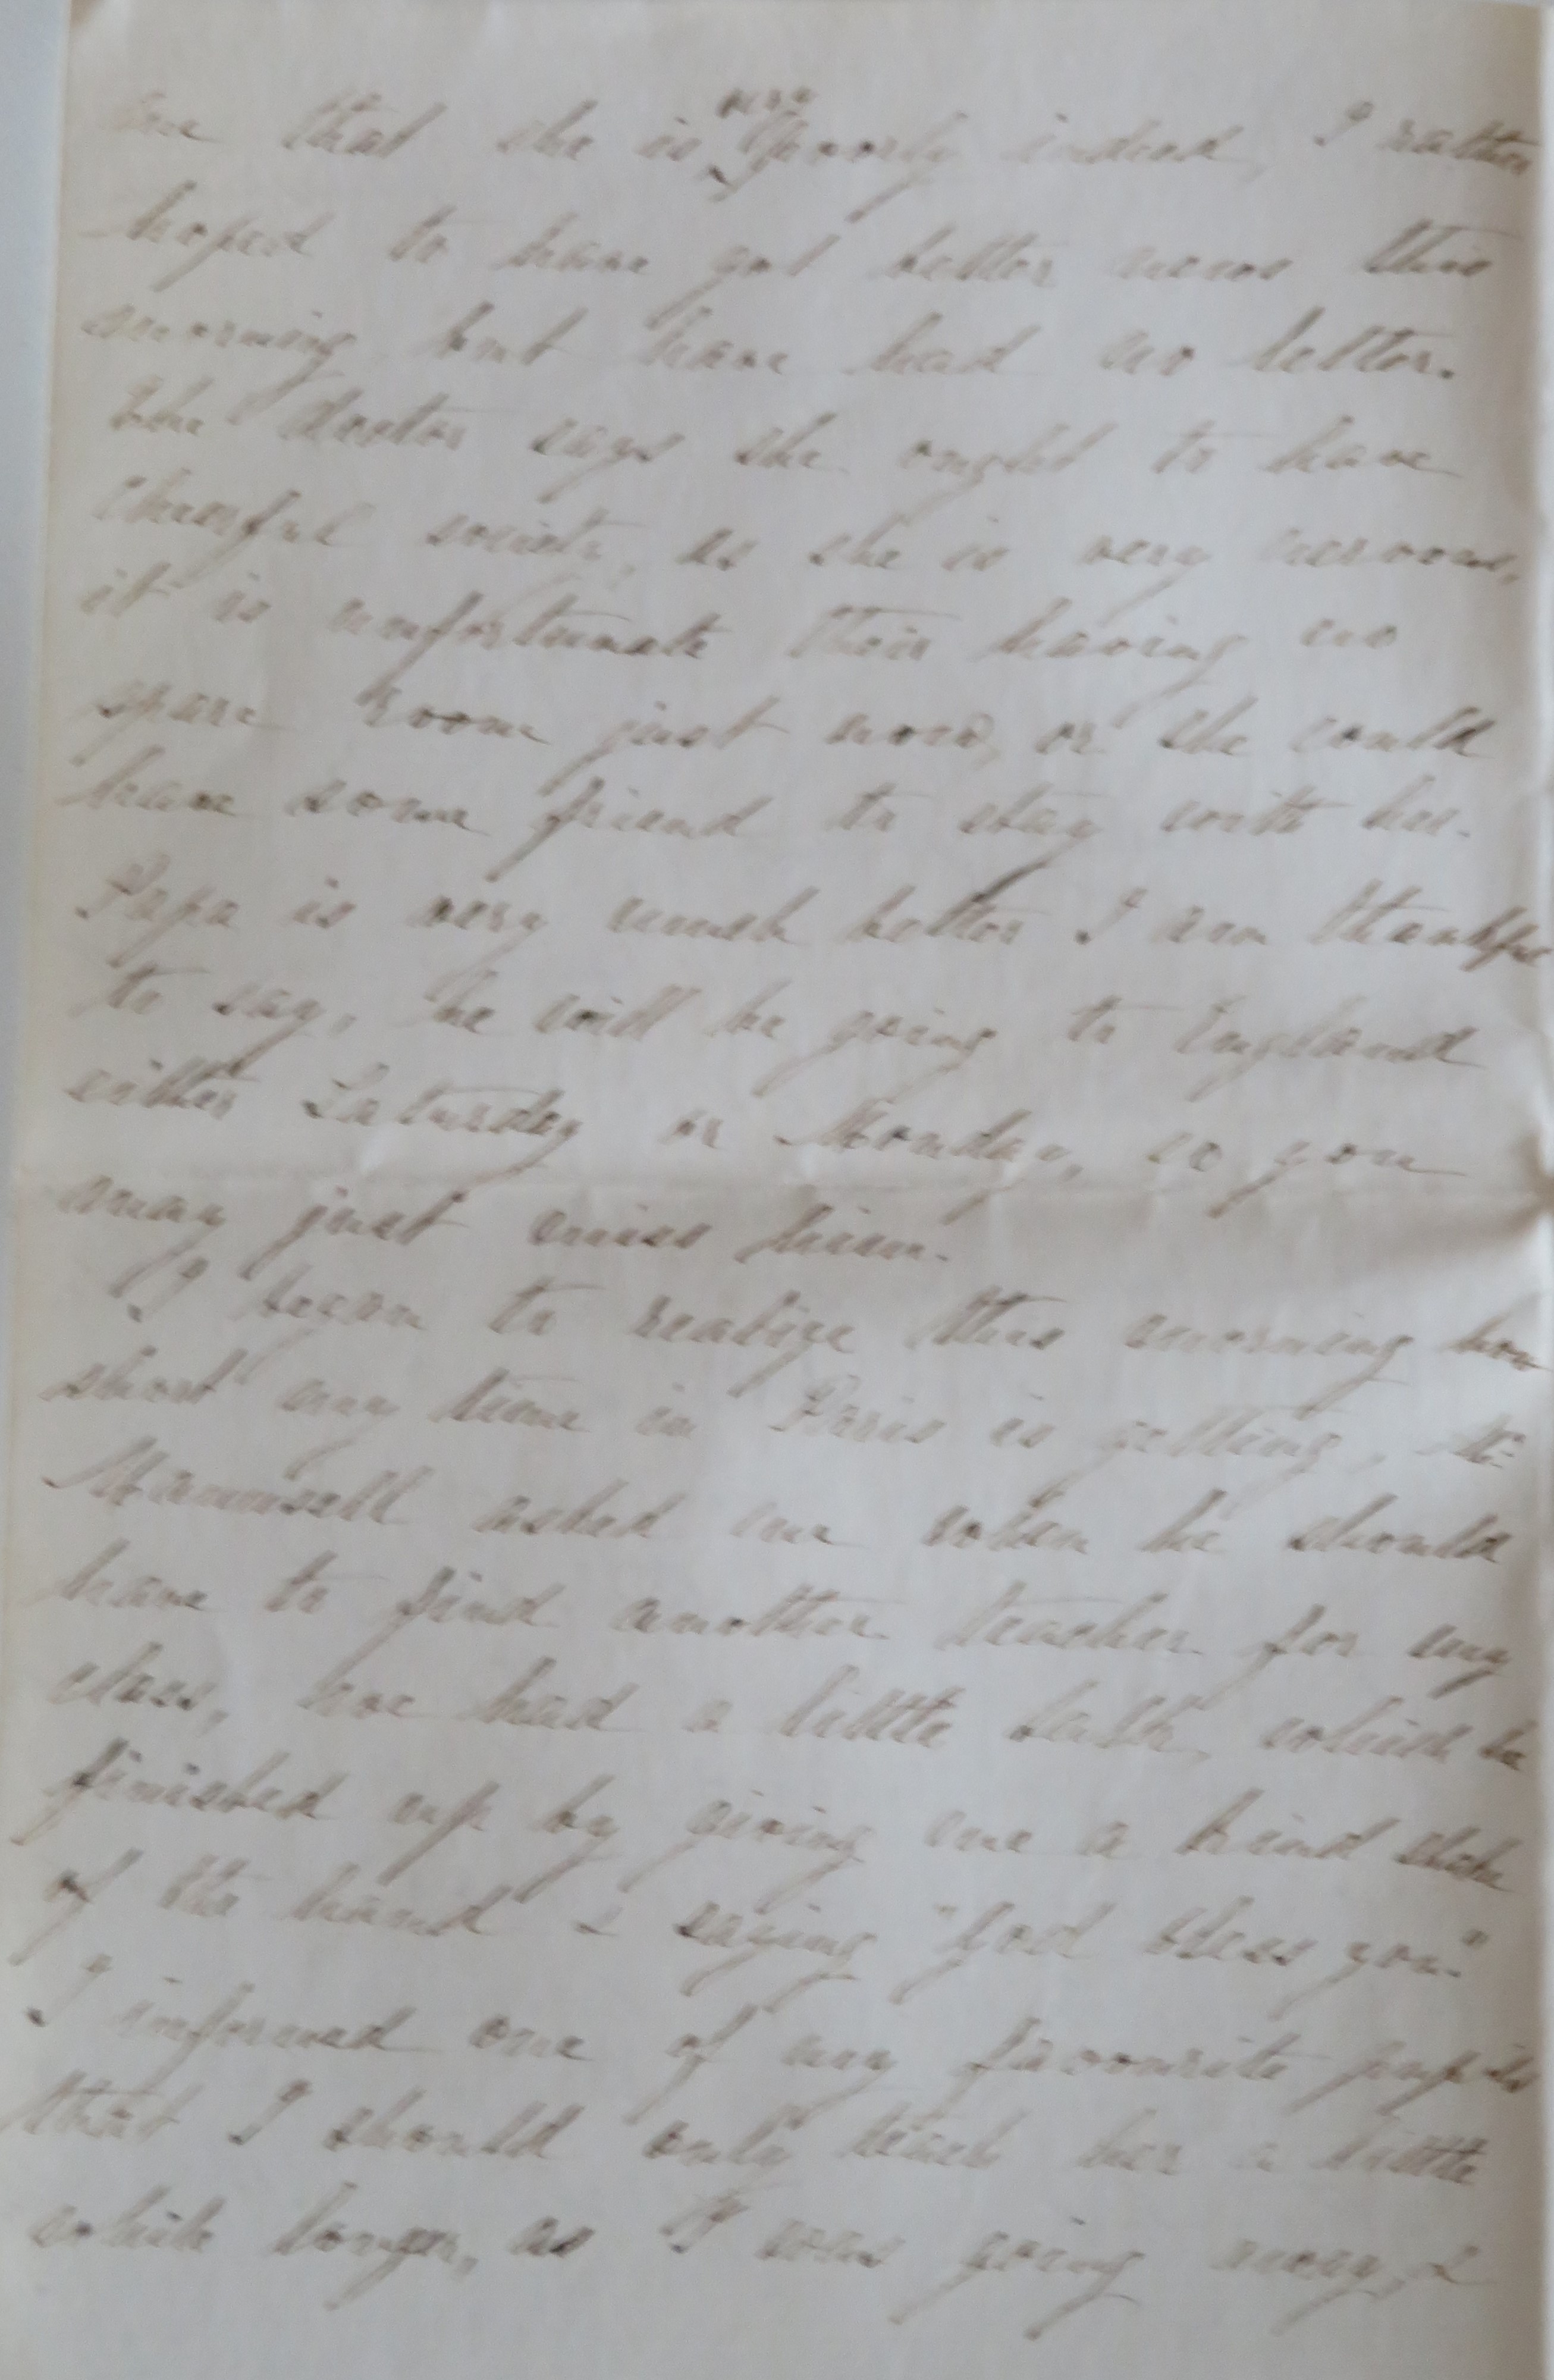 me that she is very poorly indeed, I rather
hoped to have got better news this
morning but have had no letter.
The doctor says she ought to have
cheerful society, as she is very nervous,
it is unfortunate their having no
spare room just now, or she could
have some friend to stay with her.
Papa is very much better I am thankful
to say, he will be going to England
either Saturday or Monday, so you
may just miss him.
I began to realize this morning how
short my time in Paris is getting, Mr
asked me when he should
have to find another teacher for my
class, we had a little talk, which he
finished up by giving me a kind shake
of the hand & saying "God bless you."
I informed one of my favourite pupils
that I should only teach her a little
while longer, as I was going away, &